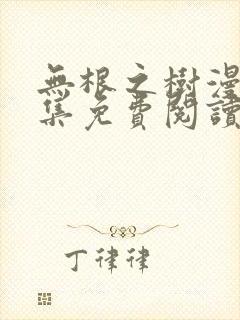 無根之樹漫
集免費閱讀
丁律律